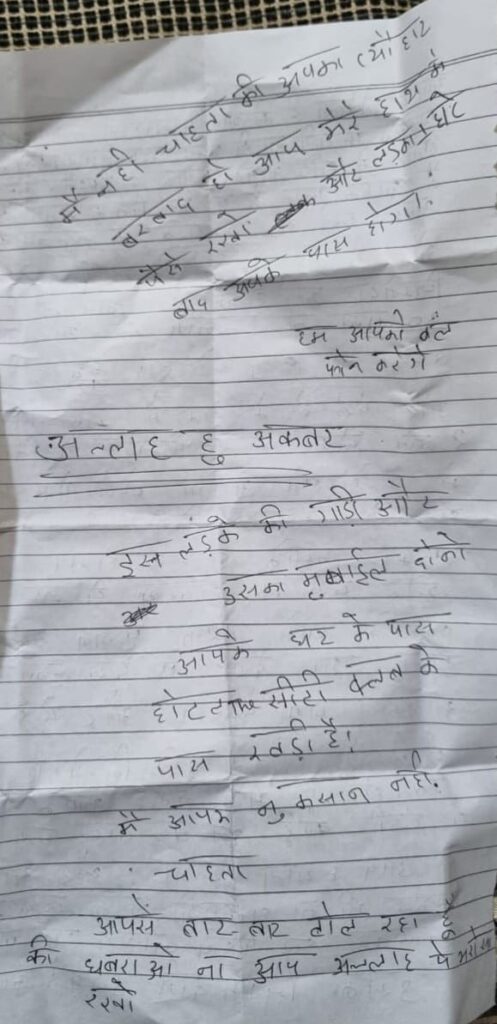 मैं नही चाहता की आपका त्यौहार
बरबाद हो आप मेरे हाथ मे
पैसे रखो और लड़का 1 घंटे
बाद आपके पास होगा।
हम आपको कॉल
फोन करेगे
अल्लाह हु अकबर
इस लड़के की गाडी और
उसका मुबाईल दोनो
आपके घर के पास
होटल the सीटी क्लब के
पास खड़ी है।
मै आपका नुकसान नही.
चाहता
आपसे बार-बार बोल रहा हूँ
की घबराओ ना आप अल्लाह पे भरोसा
रखो